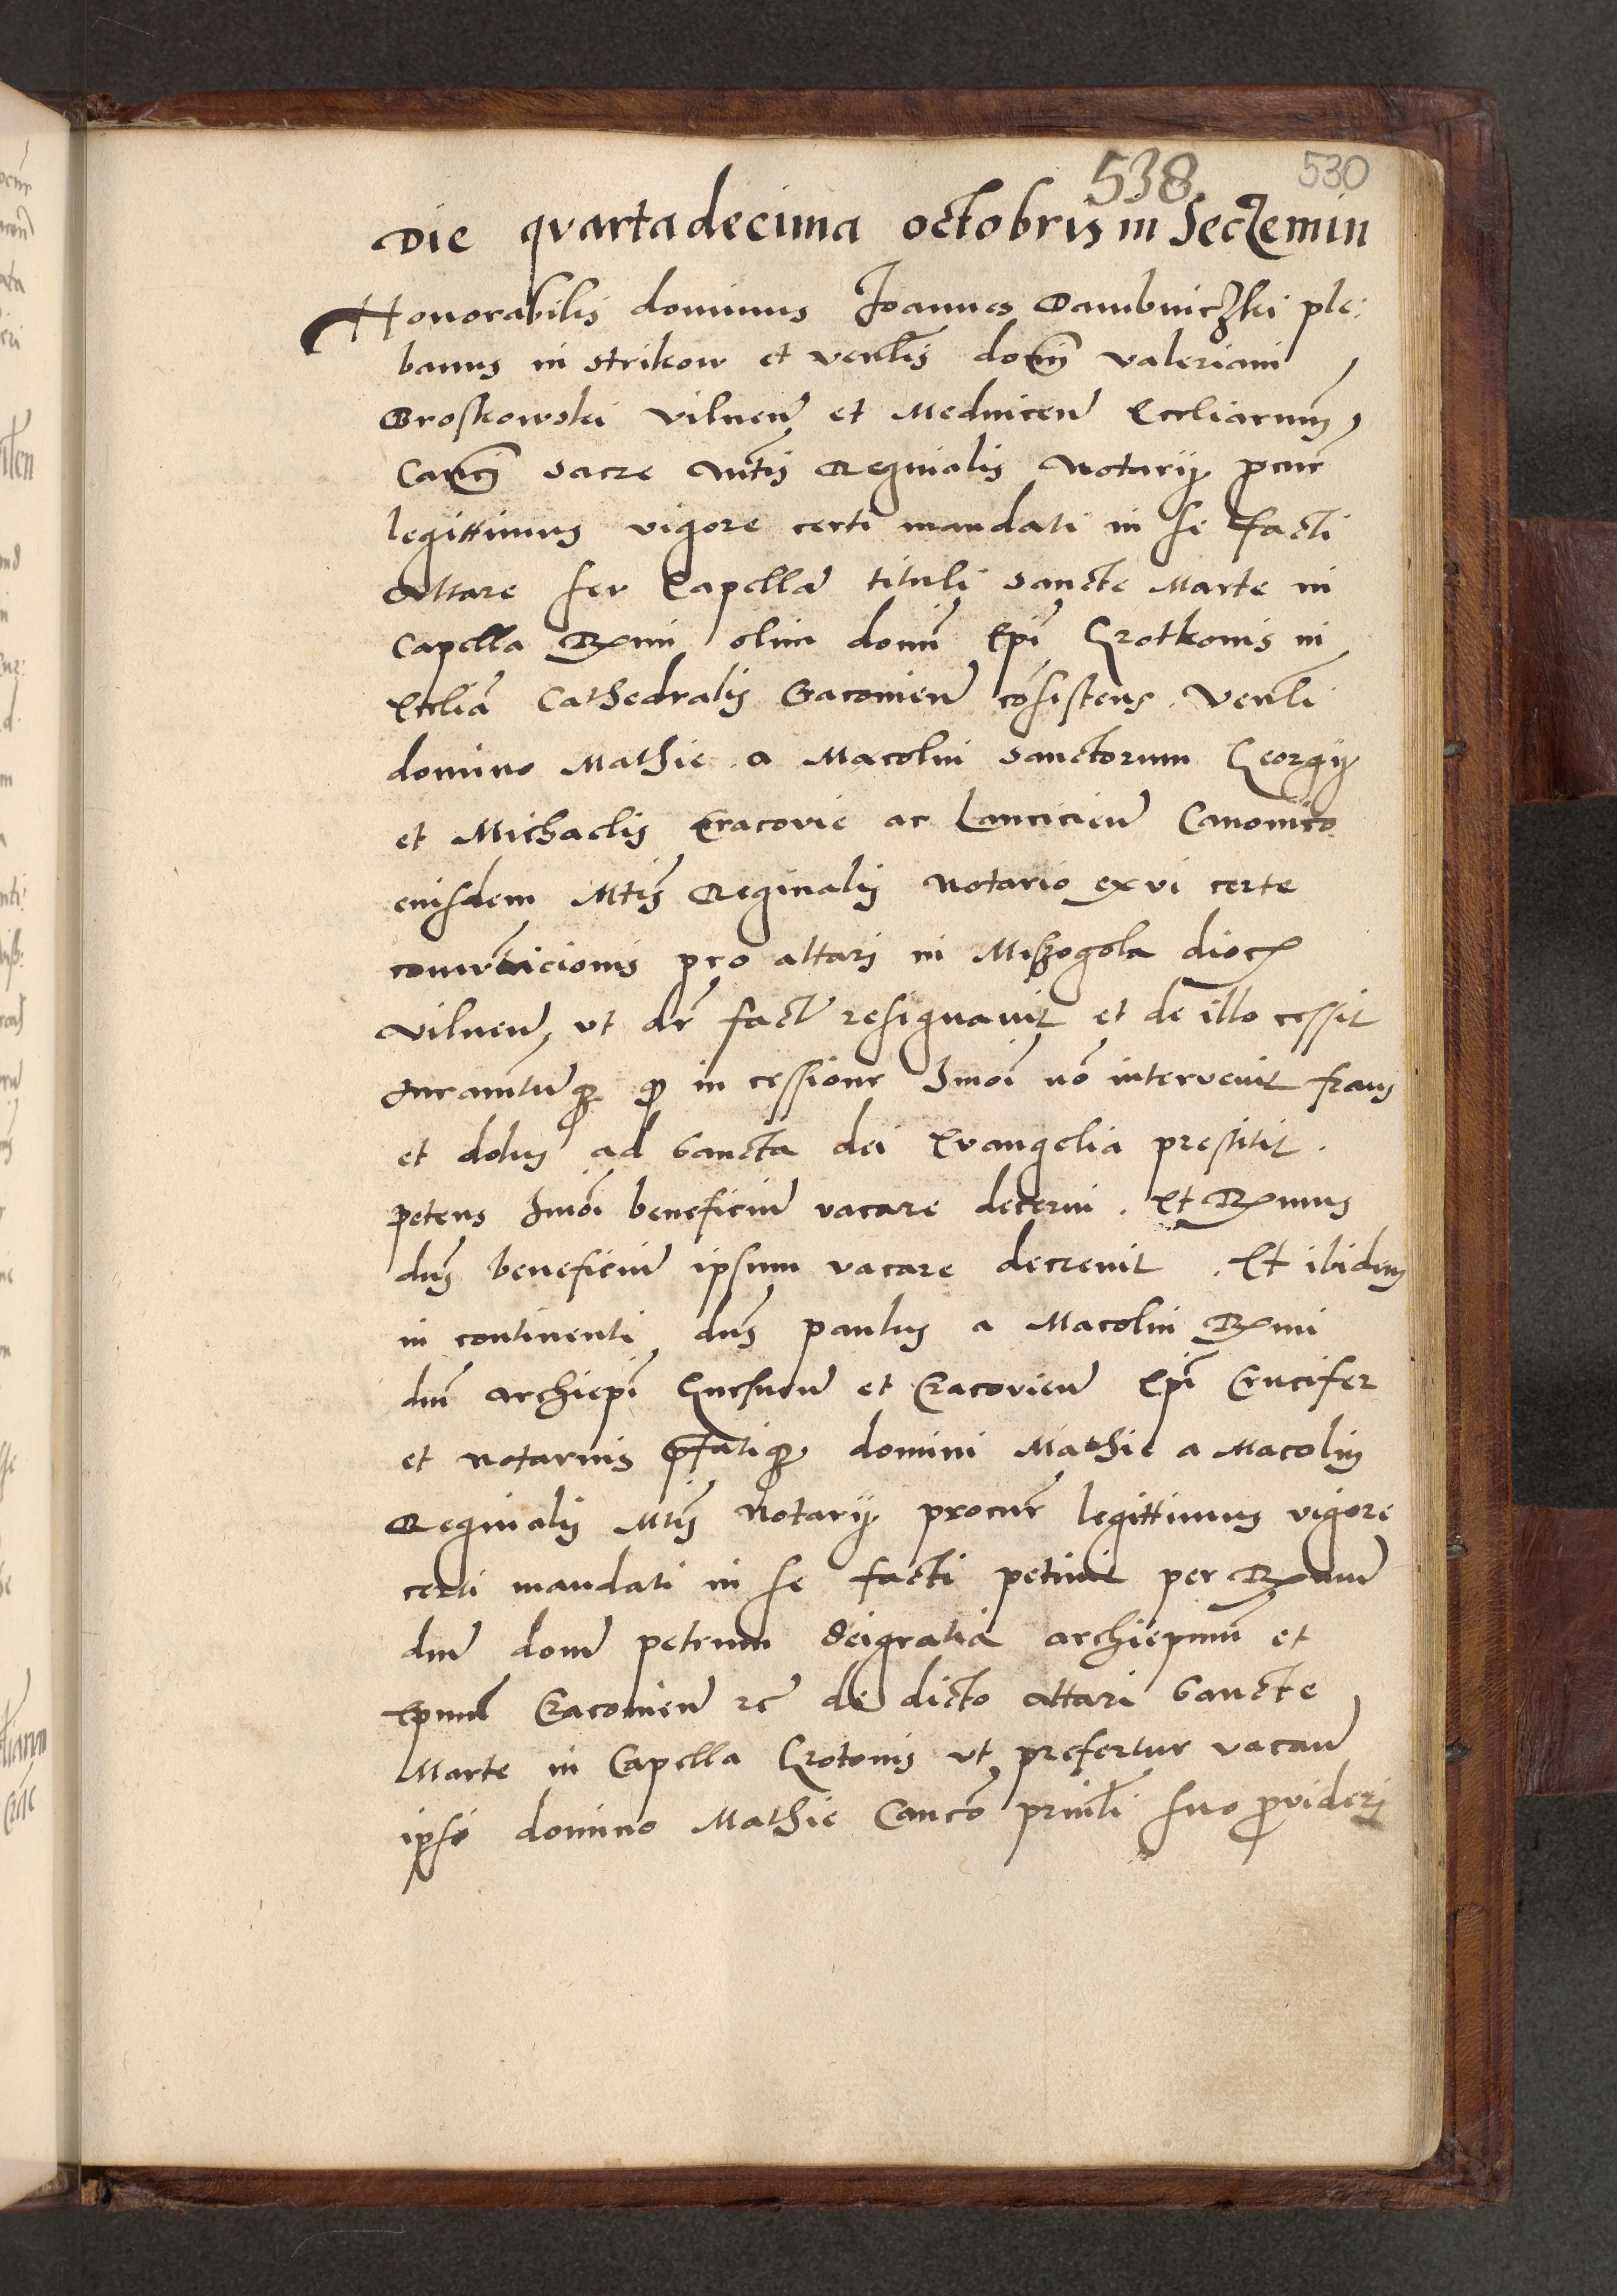 538 530
Die quartadecima octobris in Seczemin
Honorabilis dominus Joannes Dambniczki ple:
banus in Strikow et venlis domi Valeriani
Broskowski Vilnen et Mednicen Eccliarum
Canci Sacre Mtis Reginalis Notarij procur
legittimus vigore certi mandati in se facti
Altare seu Capellam tituli Sancte Marte in
Capella Rmi olim domi Epi Grotkonis in
Ecclia Cathedralis Cracovien cosistens. Venli
domino Mathie a Macolin Sanctorum Georgij
et Michaelis Cracovie ac Lancicien Canonico
eiusdem Mtis Reginalis Notario ex vi certe
pro altari in Miszogola dioc
Vilnen, ut dr facte resignavit et de illo cessit
Juramtumq q in cessione Imoi no intervenit fraus
et dolus ad Sancta dei Evangelia prestitit.
petens Imoi beneficium vacare decerni. Et Rmus
dns beneficium ipsum vacare decrevit. Et ibidem
in continenti dns paulus a Macolin Rmi
dni Archiepi Gnesnen et Cracovien Epi Crucifer
et notarius pfatiq domini Mathie a Macolin
Reginalis Mtis Notarij procur legittimus vigore
certi mandati in se facti petivit per Rmum
dnm dom petrum dei gratia archiepum et
Epum Cracovien rc de dicto altari Sancte
Marte in Capella Grotonis ut prefertur vacan
ipsi domino Mathie Canco prinli suo provideri